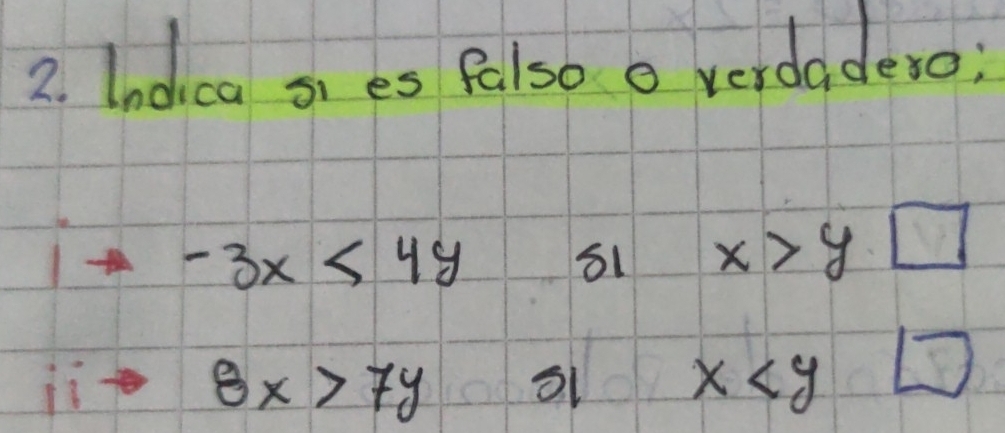 2. Indica si es falso o verdadero:
i → -3x < 4y si x > y
ii → 8x > 7y si x < y